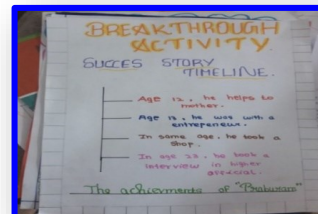 BREAKTHROUGH
ACTIVITY
SUCCES STORY
TIMELINE.
Age 12, he helps to
mother.
Age 13, he was with a
entrepeneur.
In same age, he took a
shop.
In age 23, he took a
interview in higher
official.
The achievments of "Prabakaran"